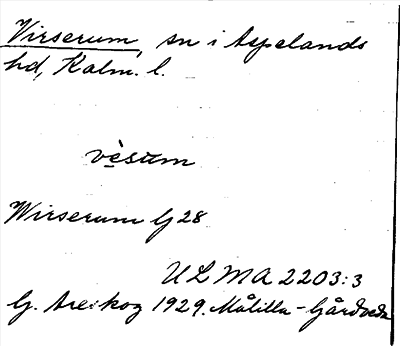 Virserum, sn i Aspelands
hd, Kalm. l.
vè̀sum
Wirserum G 28
ULMA 2203:3
G. Areskog 1929. Målilla-Gårdveda